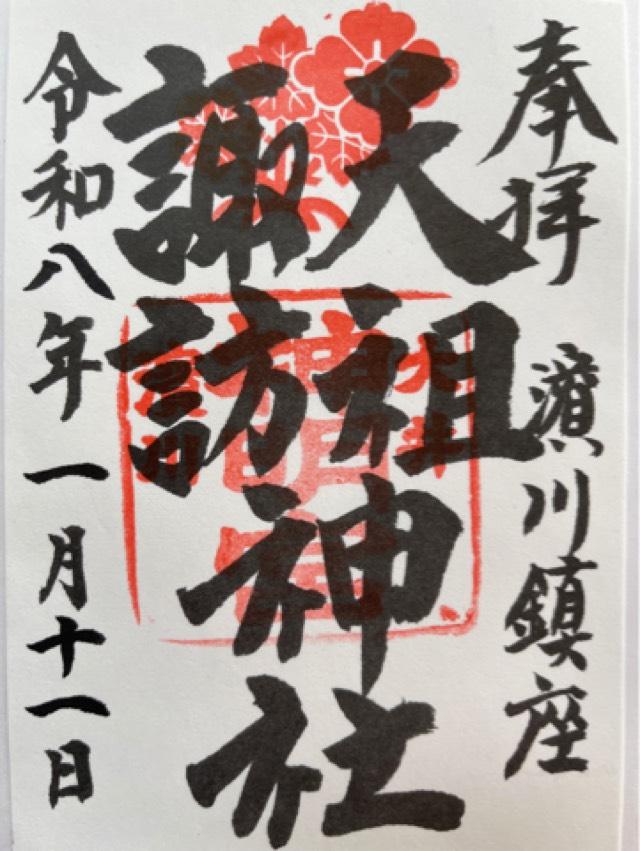 奉拝
濵川鎮座
天祖
諏訪
神社
令和八年一月十一日